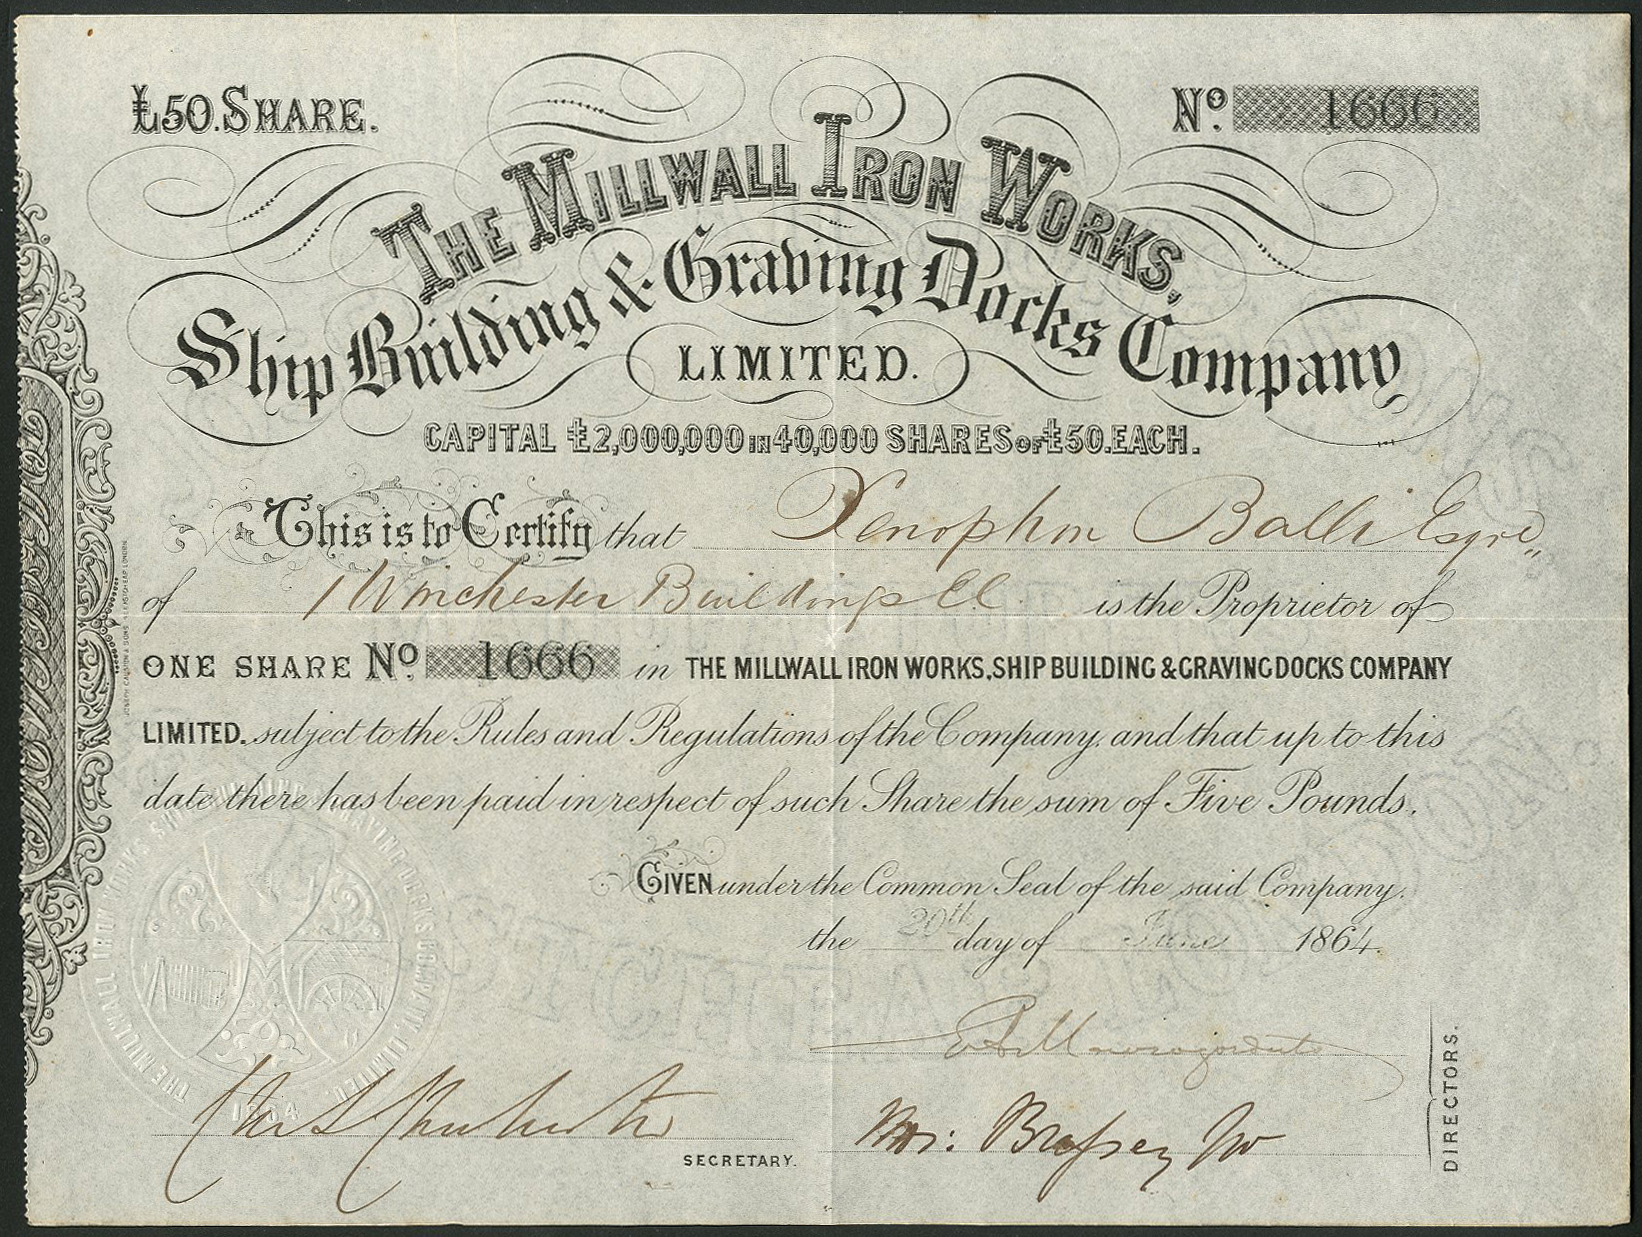 £50. SHARE.
No. 1666
THE MILLWALL IRON WORKS,
Ship Building & Graving Docks Company
LIMITED.
CAPITAL £2,000,000 IN 40,000 SHARES OF £50. EACH.
This is to Certify that Xenophon Balli Esqre
of 1 Winchester Buildings EC is the Proprietor of
ONE SHARE No. 1666 in THE MILLWALL IRON WORKS, SHIP BUILDING & GRAVING DOCKS COMPANY
LIMITED. subject to the Rules and Regulations of the Company, and that up to this
date there has been paid in respect of such Share the sum of Five Pounds.
GIVEN under the Common Seal of the said Company.
the 20th day of June 1864.
DIRECTORS.
SECRETARY.
THE MILLWALL IRON WORKS SHIP GRAVING DOCKS COMPANY, LIMITED.
1864